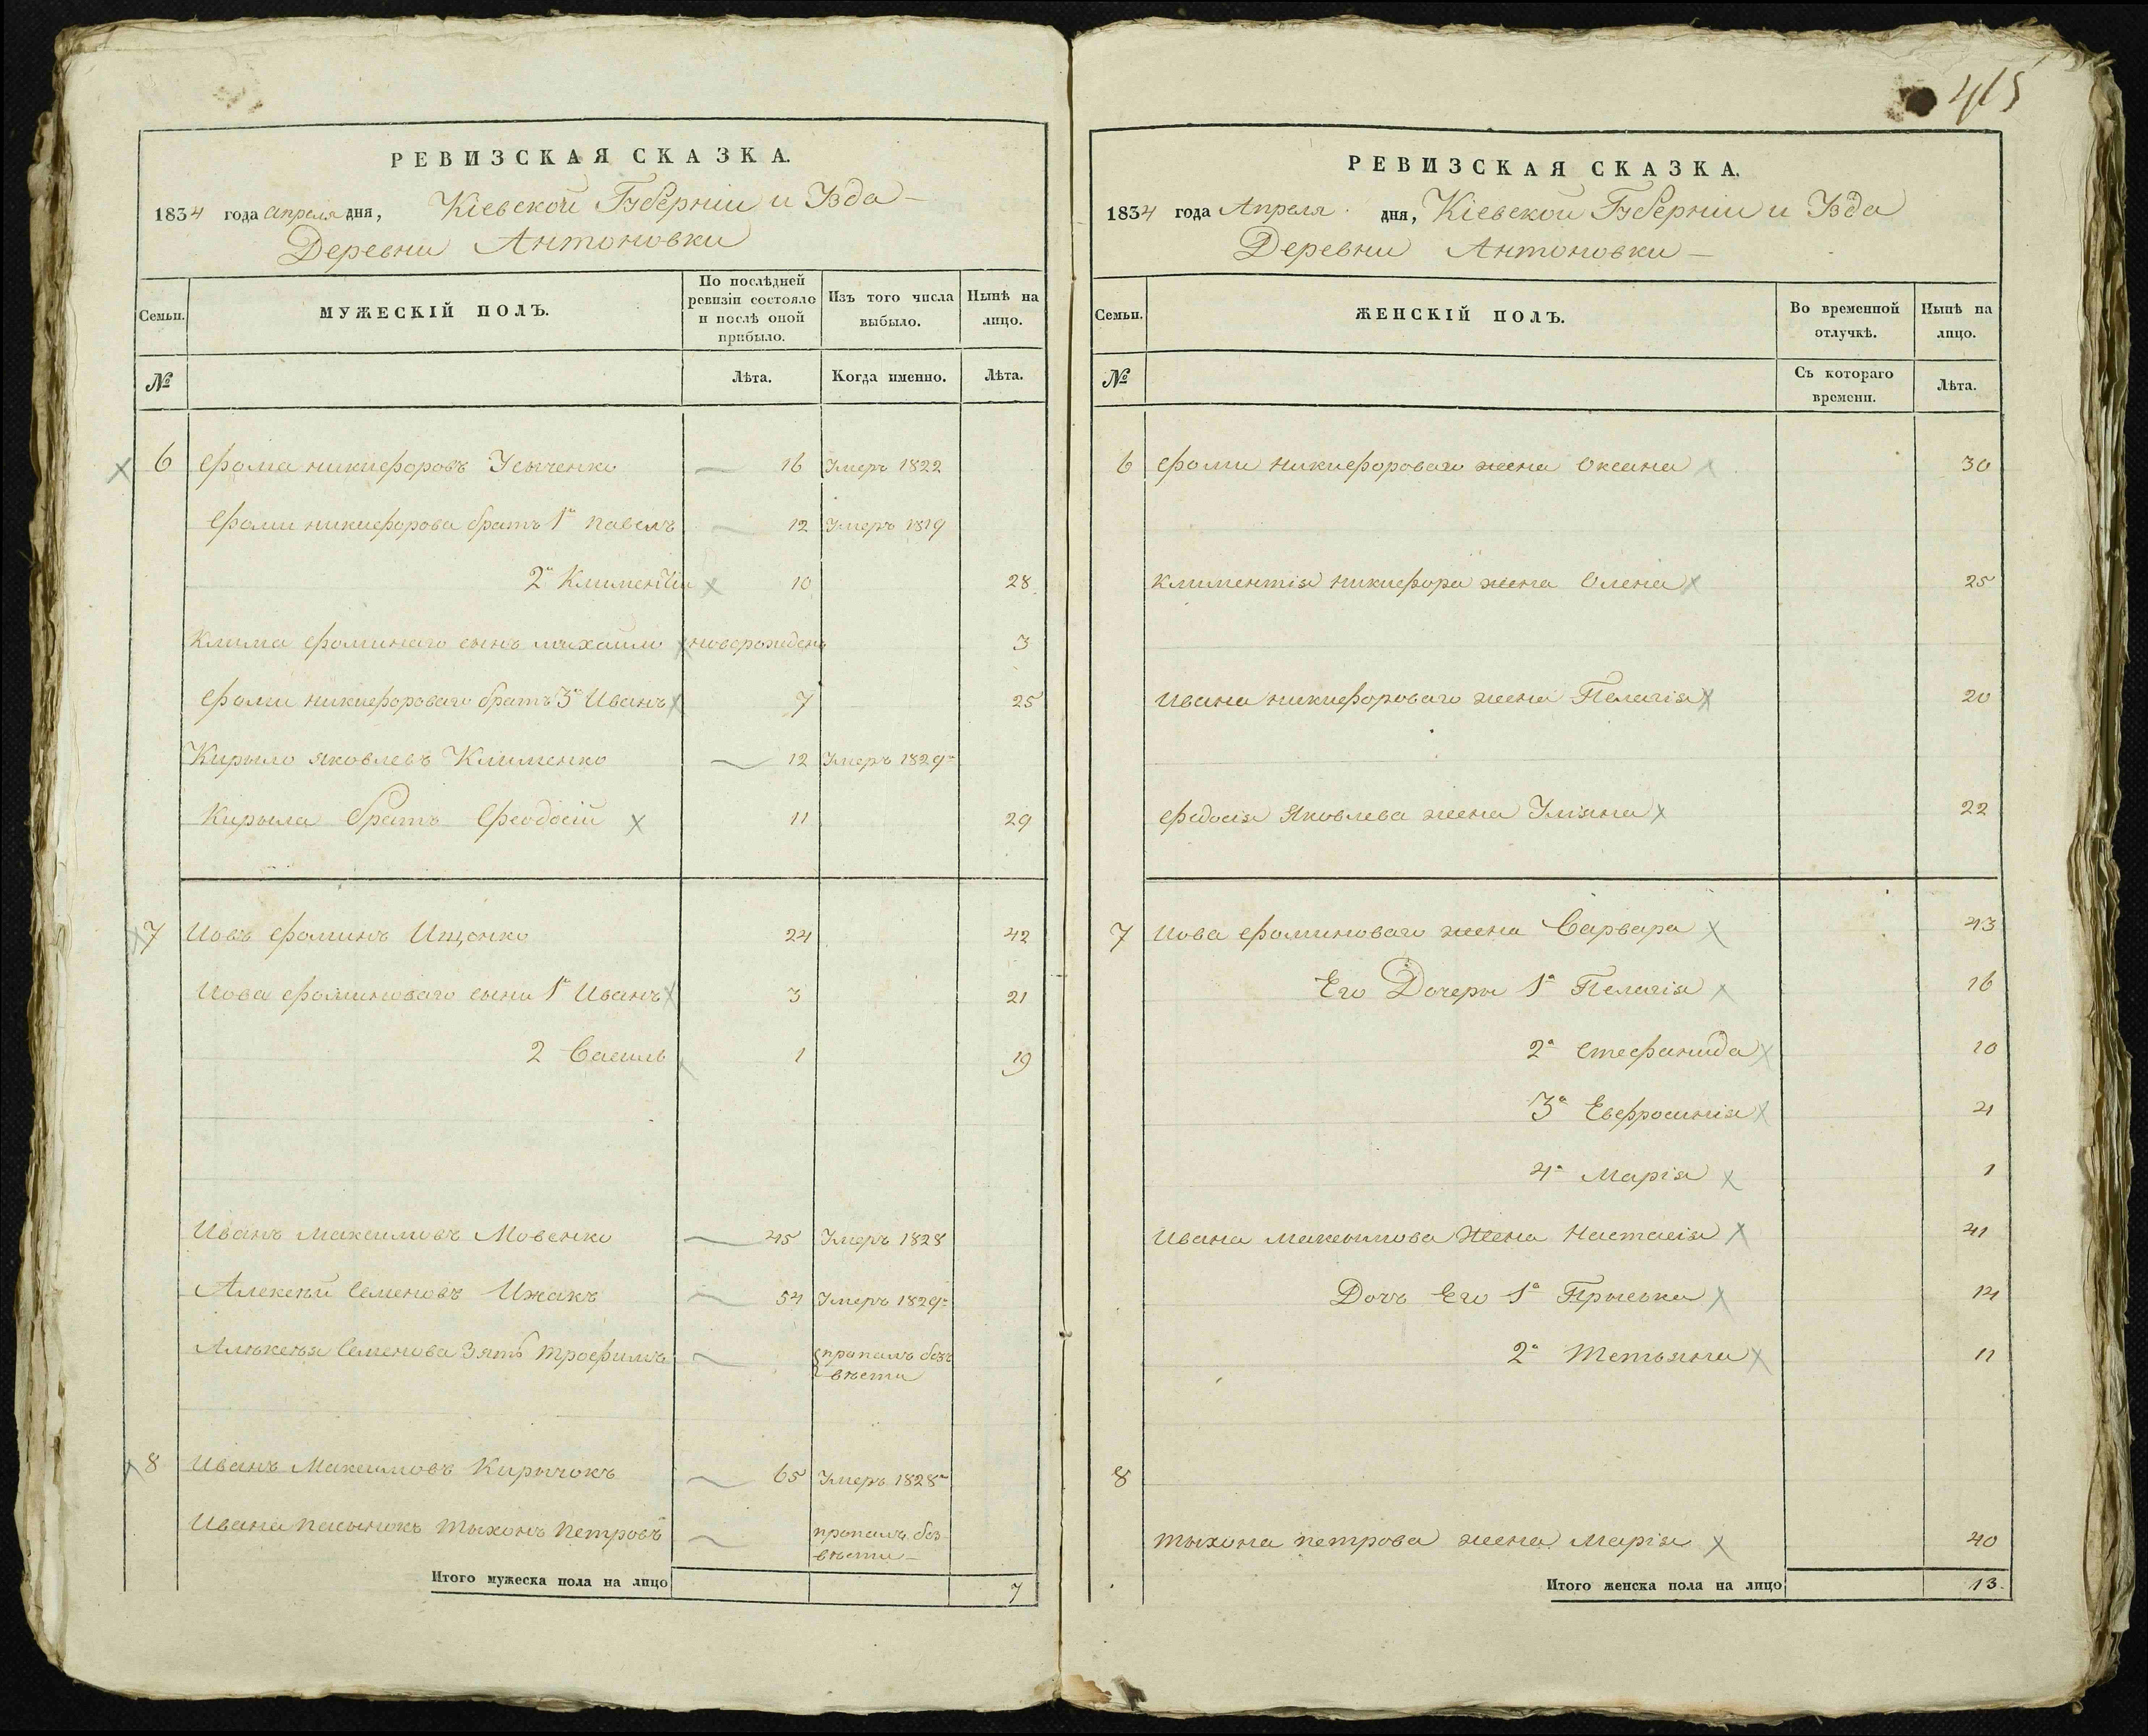 415
РЕВИЗСКАЯ СКАЗКА.
1834 года апреля дня, Кіевской Губерніи и Уѣзда
Деревни Антоновки
Семьи.
МУЖЕСКІЙ ПОЛЪ.
По послѣдней ревизіи состояло и послѣ оной прибыло.
Изъ того числа выбыло.
Нынѣ на лицо.
№ Лѣта. Когда именно. Лѣта.
6 Фома никифоровъ Усыченко 16 Умеръ 1822
Фоми никифорова братъ 1й павелъ 12 Умеръ 1819
2й Климентій 10 28
Клима фоминаго сынъ михайло новорожденъ 3
Фоми никифороваго братъ 3й Иванъ 7 25
Кирыло яковлевъ Клименко 12 Умеръ 1829
Кирыла братъ Феодосій 11 29
7 Иовъ фоминъ Ищенко 24 42
Иова фоминоваго сыни 1й Иванъ 3 21
2 Василь 1 19
Иванъ максимовъ Мовенко 45 Умеръ 1828
Алексѣй Семеновъ Ижакъ 54 Умеръ 1829
Семенова Зять трофимъ пропалъ безъ
вѣсти
8 Иванъ Максимовъ Киричокъ 65 Умеръ 1828
Ивана пасынокъ тыхонъ петровъ пропалъ без
вѣсти
Итого мужеска пола на лицо 7
РЕВИЗСКАЯ СКАЗКА.
1834 года Апреля дня, Кіевской Губерніи и Уѣзда
Деревни Антоновки
Семьи.
ЖЕНСКІЙ ПОЛЪ.
Во временной отлучкѣ.
Нынѣ на лицо.
№ Съ котораго времени. Лѣта.
6 Фоми никифороваго жена Оксана 30
климентія никифора жена Олена 25
Ивана никифороваго жена Пелагія 20
федосія Яковлева жена Уліяна 22
7 Иова фоминоваго жена Варвара 43
Его Дочеры 1а Пелагія 16
2а стефанида 10
3а Евфросинія 4
4а Марія 1
Ивана максымова жена Настасія 41
Дочь Его 1а Прыська 14
2а Тетьяна 11
8
тыхона петрова жена Марія 40
Итого женска пола на лицо 13